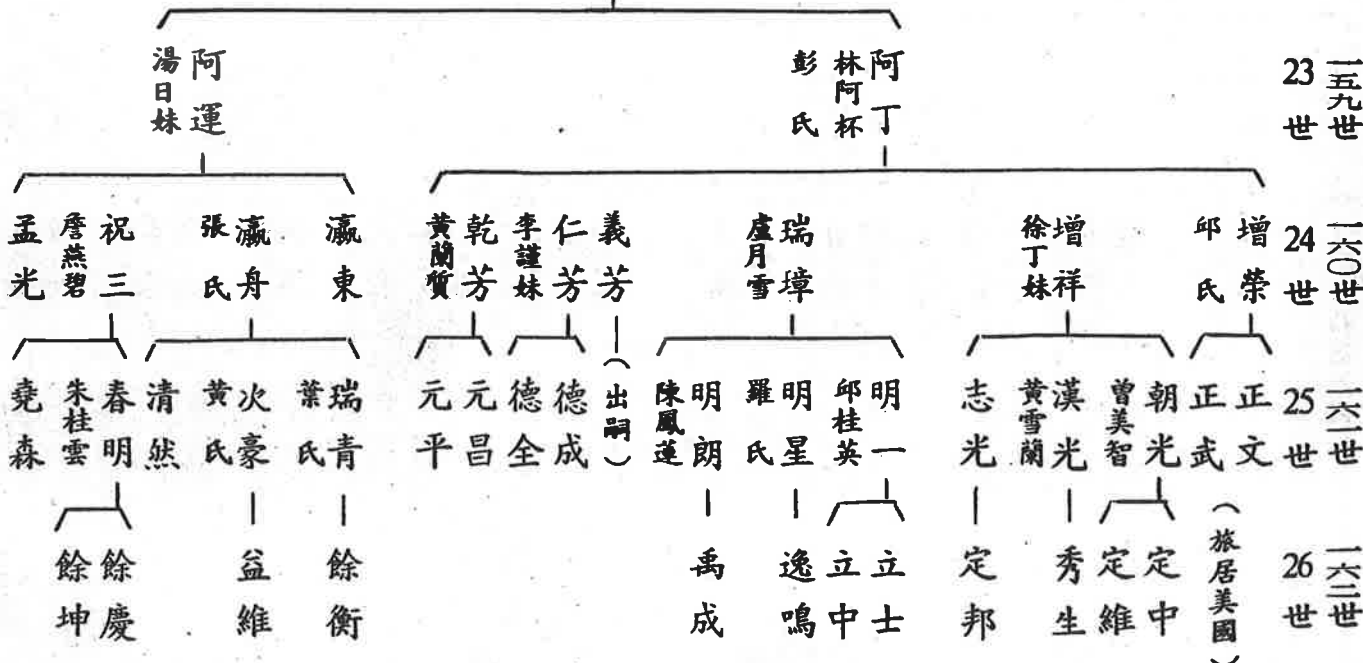 一五九世
23世
阿丁
林阿杯
彭氏
阿運
湯日妹
一六〇世
24世
增榮
邱氏
增祥
徐丁妹
瑞璋
盧月雪
義芳
仁芳
李謹妹
乾芳
黃蘭質
瀛東
瀛舟
張氏
祝三
詹燕碧
孟光
一六一世
25世
正文
正武
朝光
曾美智
漢光
黃雪蘭
志光
明一
邱桂英
明星
羅氏
明朗
陳鳳蓮
（出嗣）
德成
德全
元昌
元平
瑞青
葉氏
次豪
黃氏
清然
春明
朱桂雲
堯森
一六二世
26世
（旅居美國）
定中
定維
秀生
定邦
立士
立中
逸鳴
禹成
餘衡
益維
餘慶
餘坤